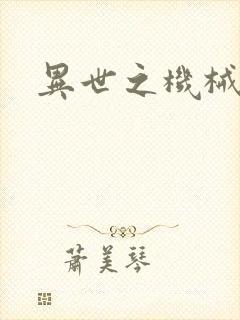 異世之機械
蕭美琴